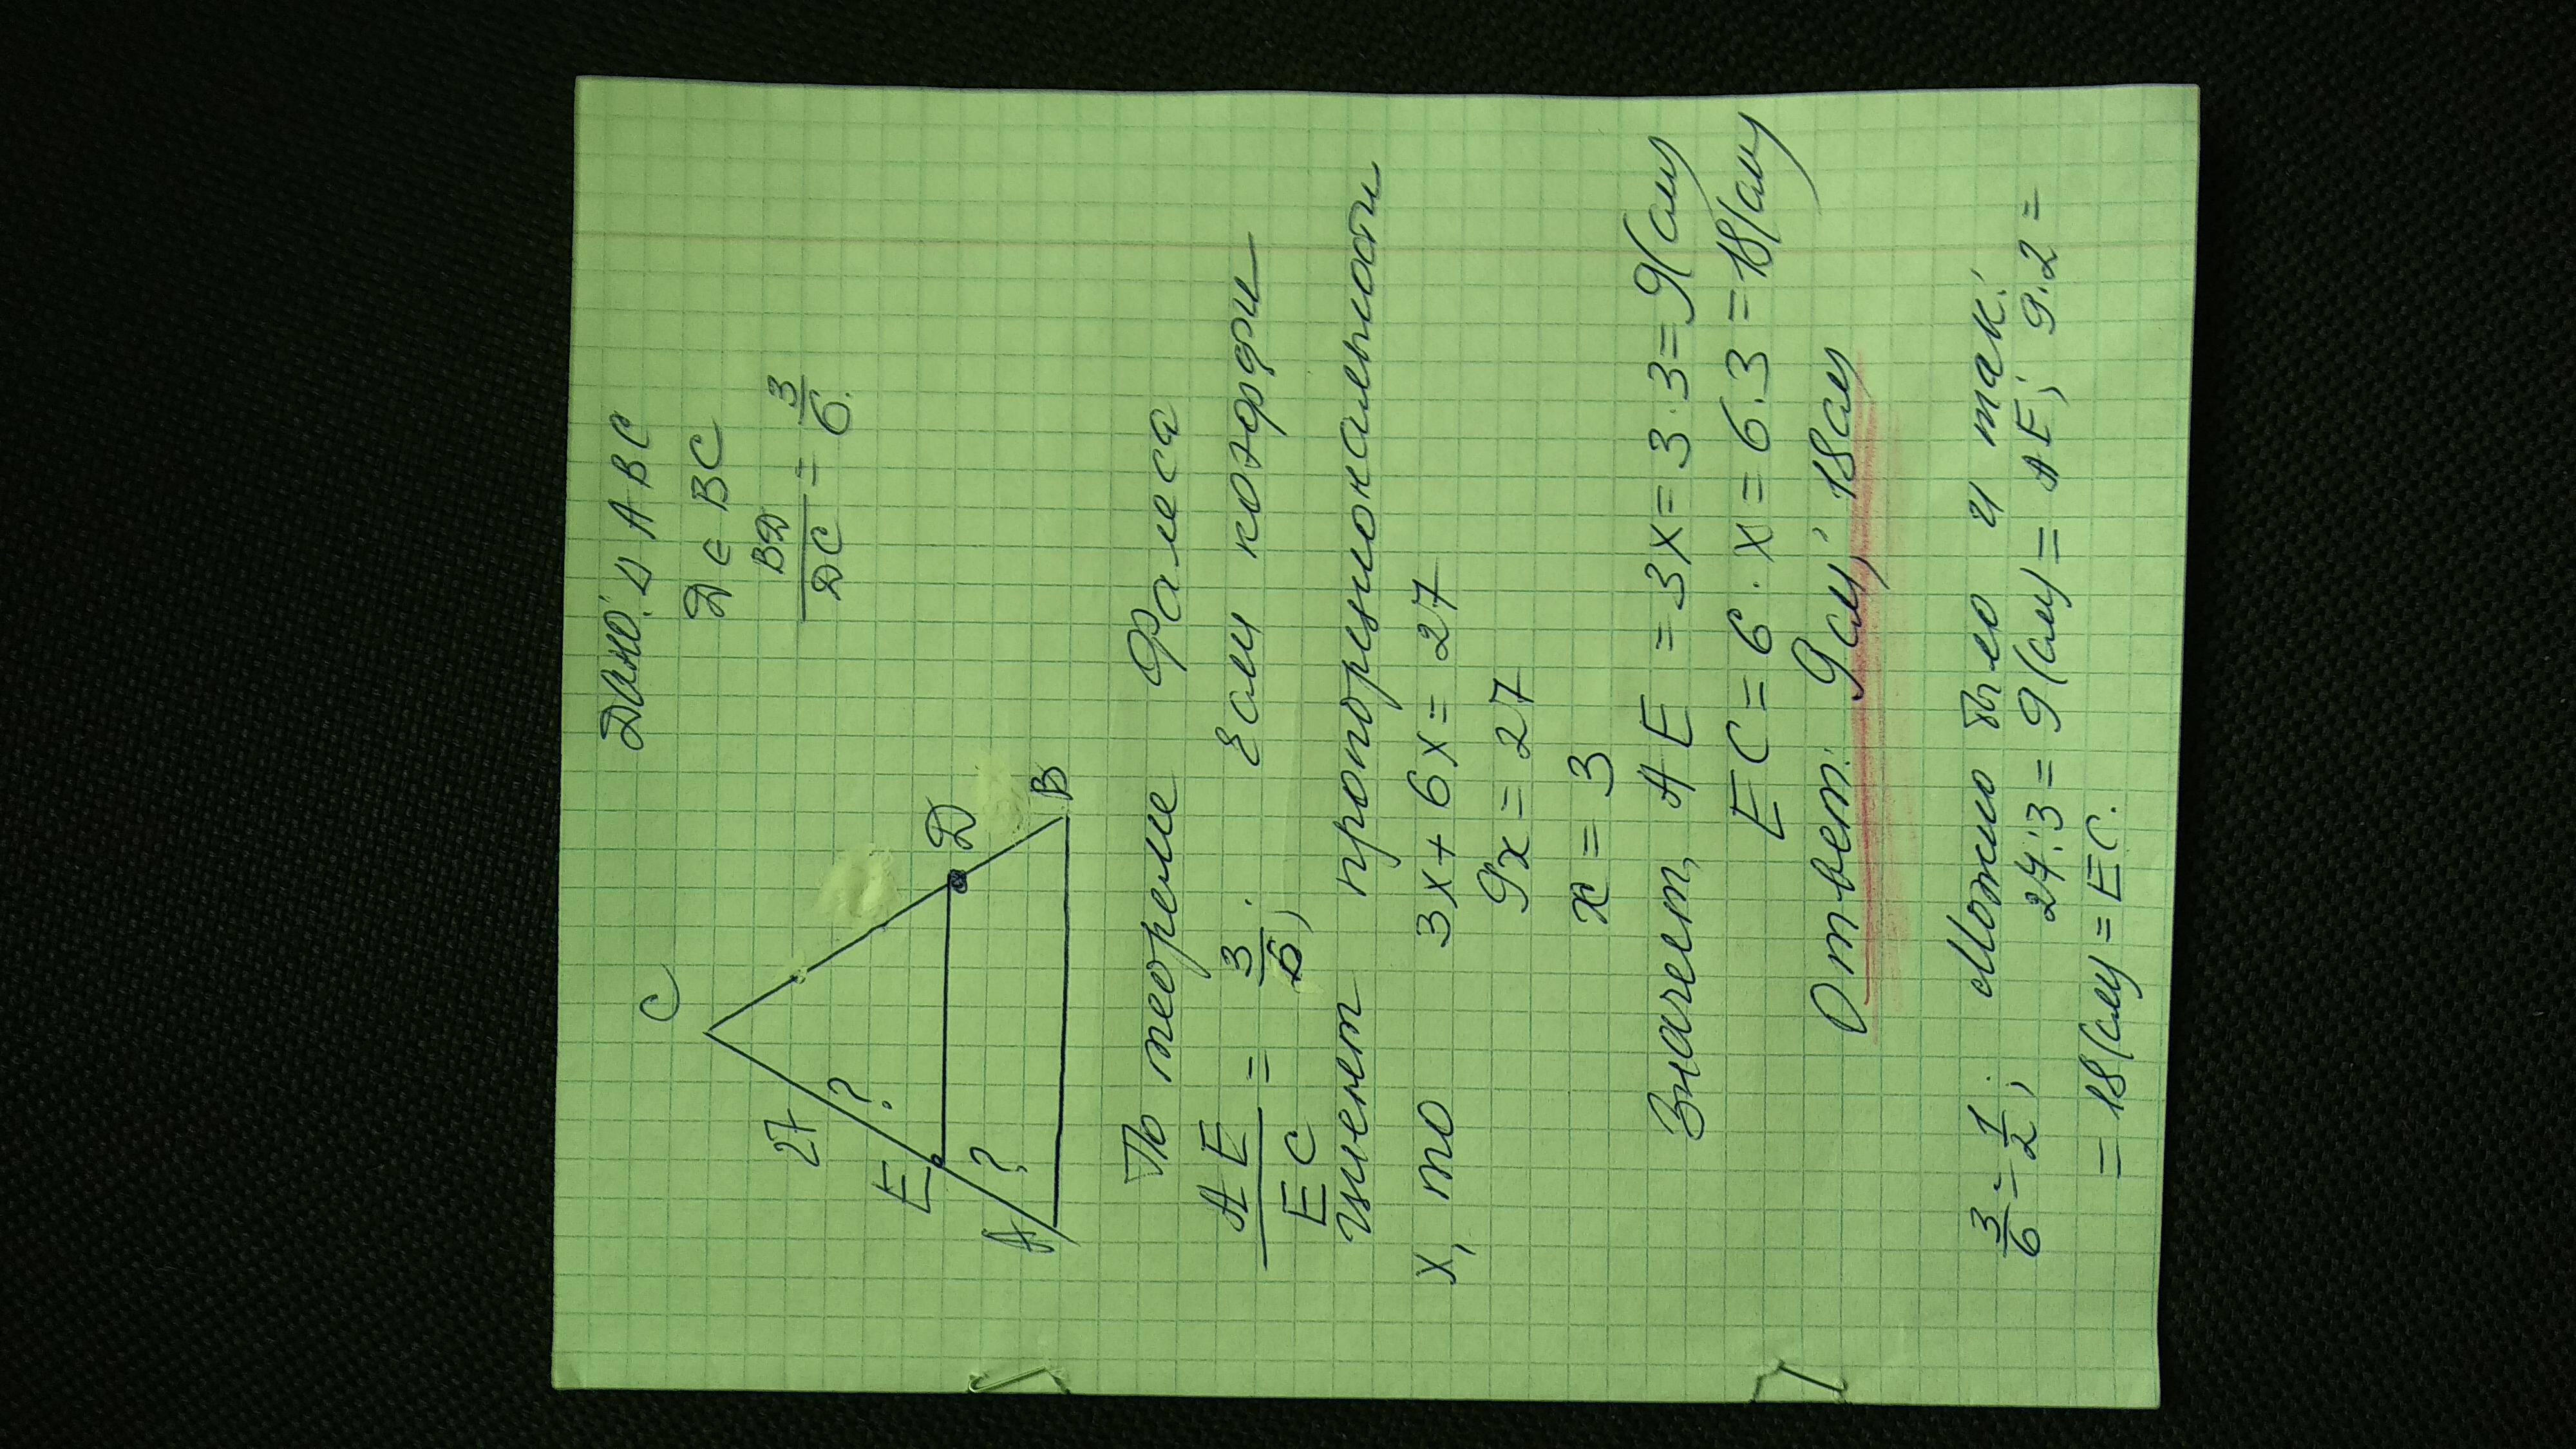 Дано: Δ ABC
Д ∈ BC
BД/ДC = 3/6.
C
27
?
E
Д
A
?
B
По теореме Фалеса
AE/EC = 3/6. Если коэффи-
циент, пропорциональности
x, то 3x + 6x = 27
9x = 27
x = 3
Значит, AE = 3x = 3·3 = 9(см)
EC = 6·x = 6·3 = 18(см)
Ответ: 9см; 18см
3/6 = 1/2; Можно было и так:
27:3 = 9(см) = AE; 9·2 =
= 18(см) = EC.